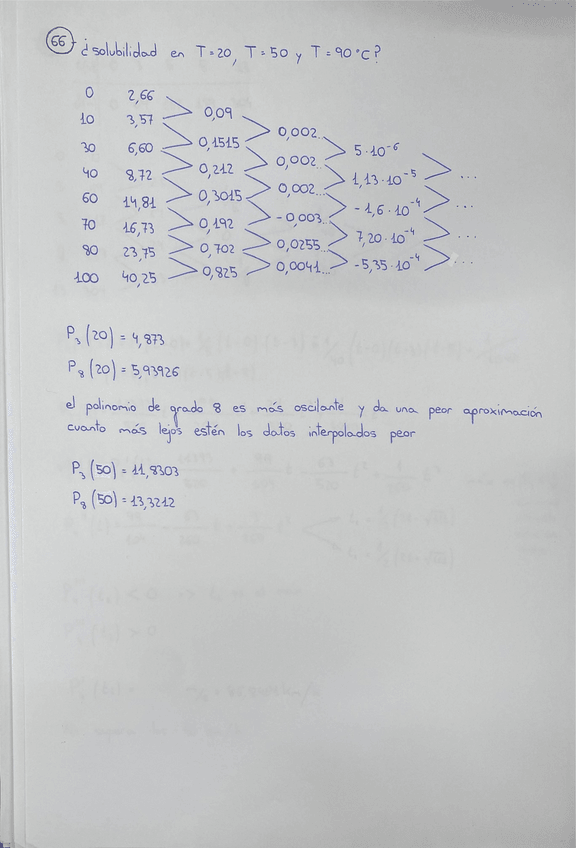 66 ¿solubilidad en T=20, T=50 y T=90°C?
0 2,66
10 3,57 0,09
30 6,60 0,1515 0,002..
40 8,72 0,212 0,002.. 5·10⁻⁶
60 14,81 0,3015 0,002... 1,13·10⁻⁵ ...
70 16,73 0,192 -0,003.. -1,6·10⁻⁴ ...
80 23,75 0,702 0,0255... 7,20·10⁻⁴ ...
100 40,25 0,825 0,0041... -5,35·10⁻⁴
P₃(20) = 4,873
P₈(20) = 5,93926
el polinomio de grado 8 es más oscilante y da una peor aproximación
cuanto más lejos estén los datos interpolados peor
P₃(50) = 11,8303
P₈(50) = 13,3212